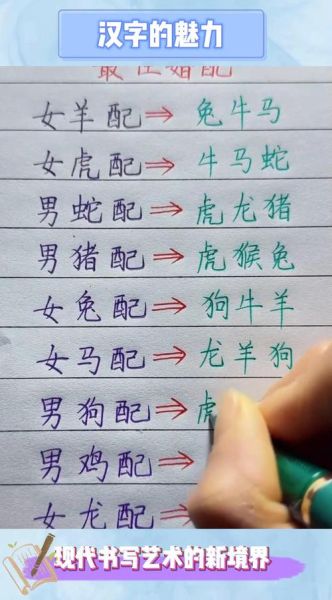 汉字的魅力
最佳婚配
女羊配⇒兔牛马
女虎配⇒牛马蛇
男蛇配⇒虎龙猪
男猪配⇒虎猴兔
女兔配⇒狗牛羊
女马配⇒龙羊狗
男狗配⇒虎
男鸡配⇒
女龙配⇒
现代书写艺术的新境界